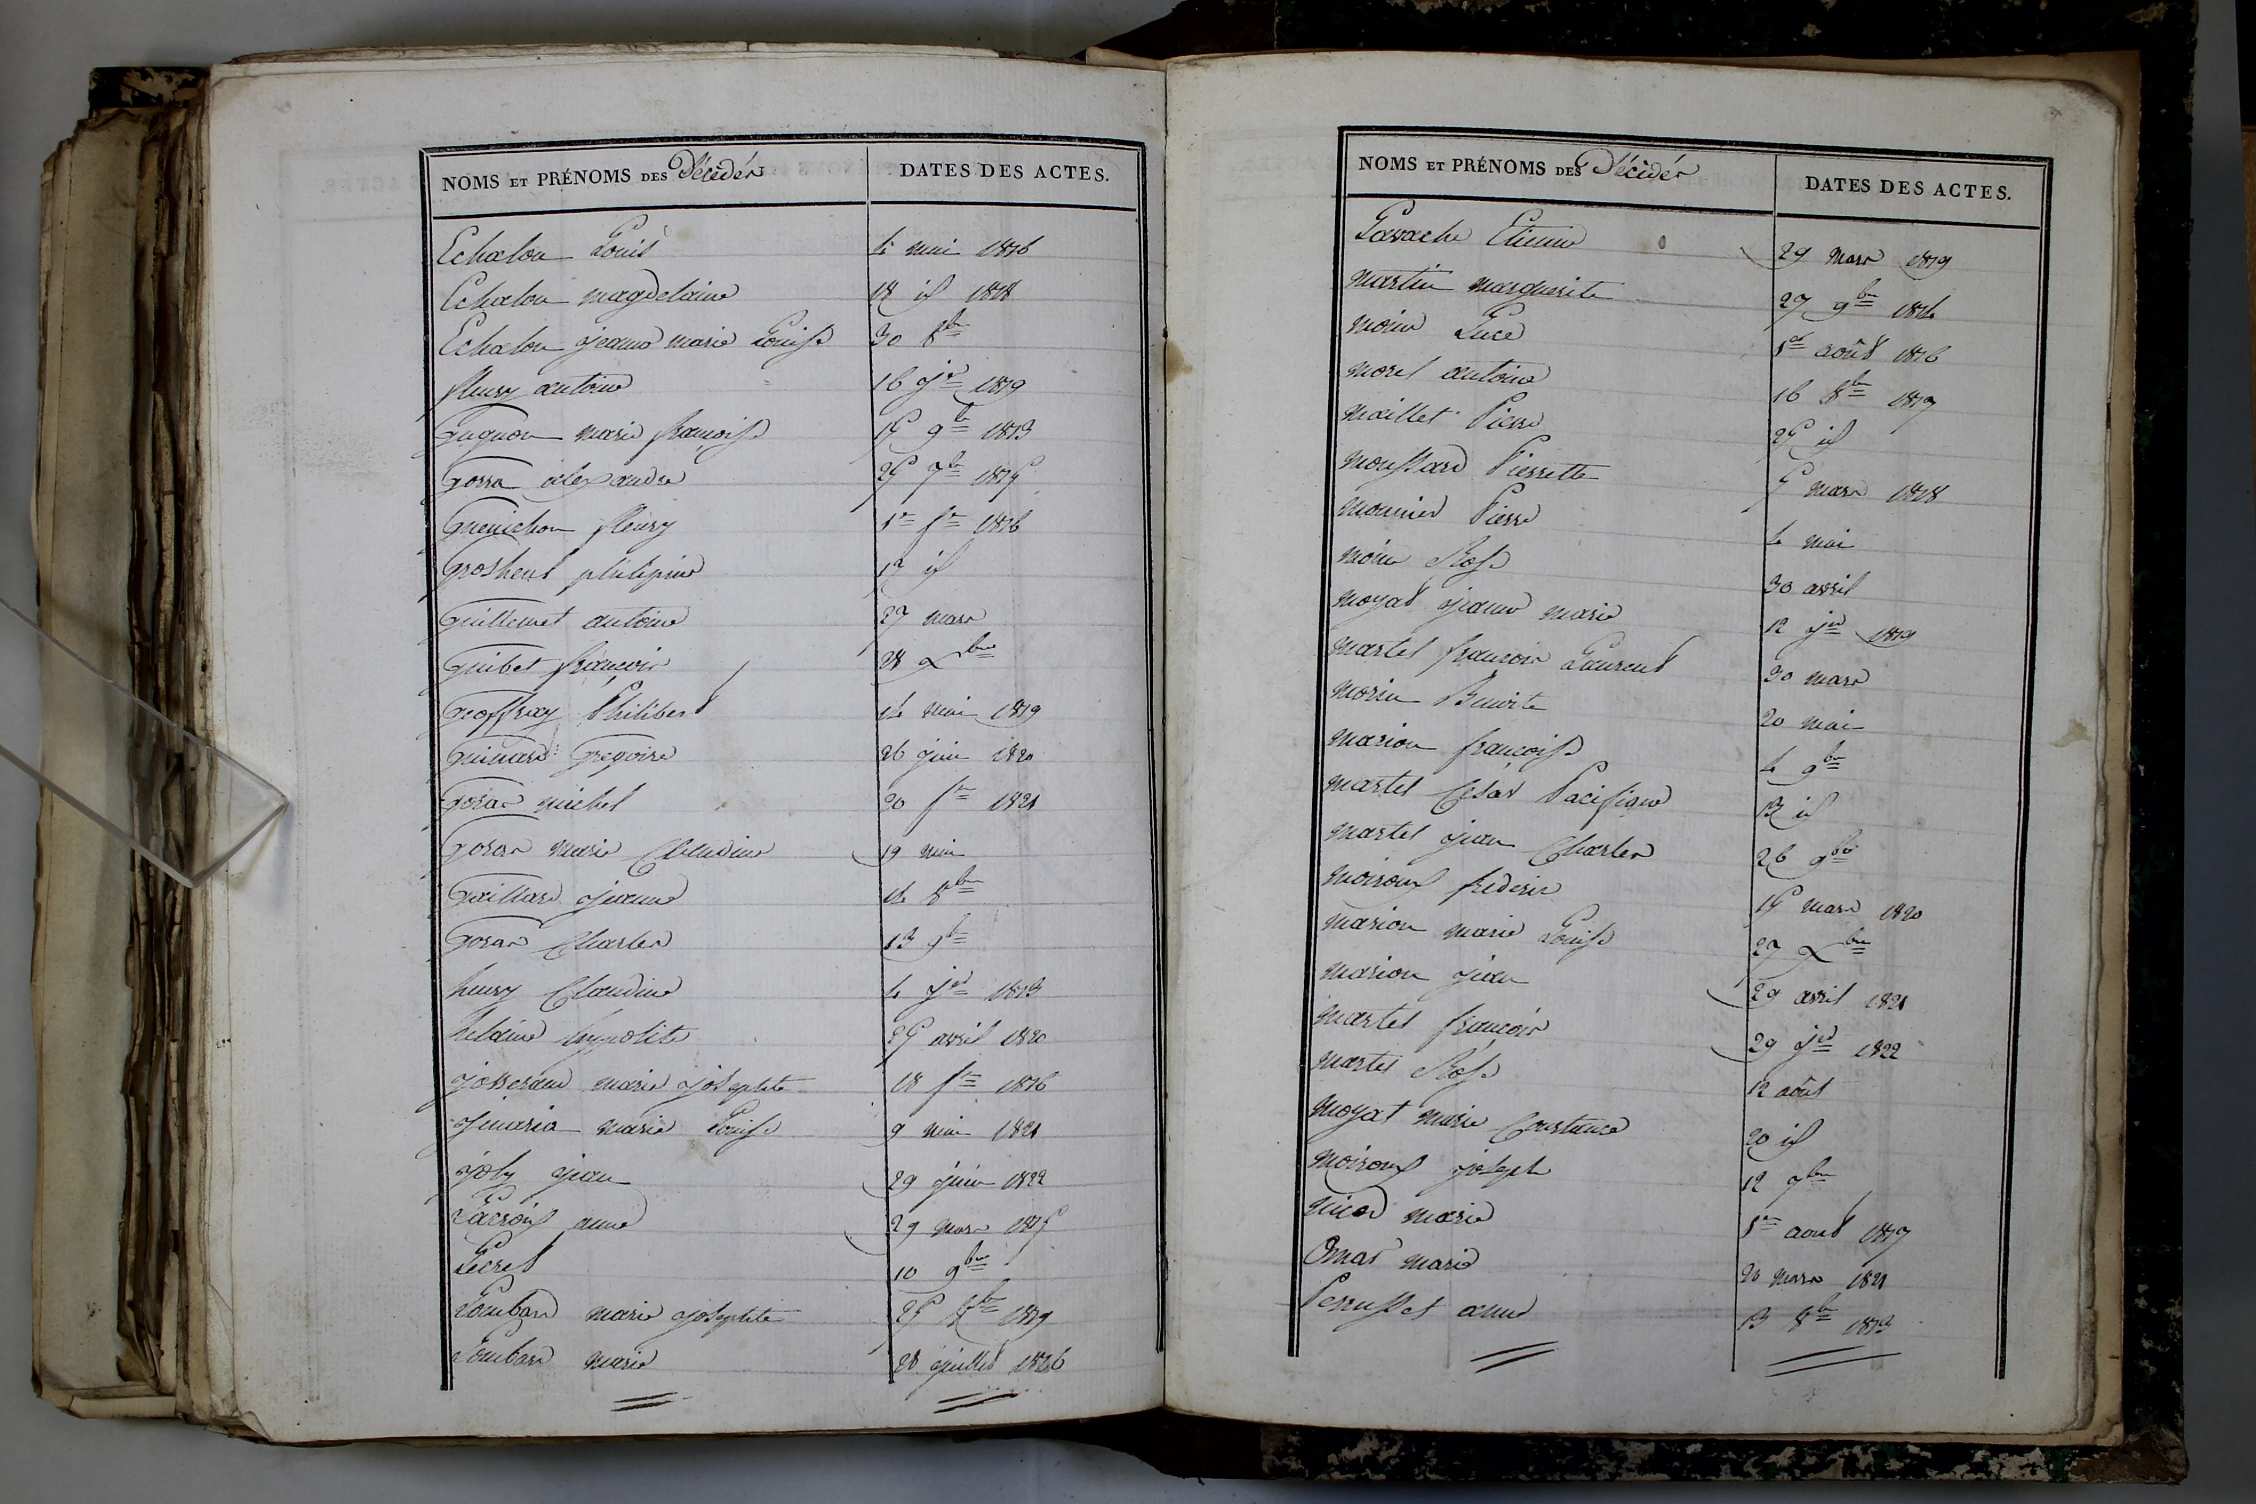 NOMS ET PRÉNOMS DES Décédés DATES DES ACTES.
Echalon Louis 4 mai 1816
Echalon magdelaine 18 id 1818
Echalon jeanne marie Louise 30 8bre
fleury antoine 16 jer 1819
Gugnon marie françoise 15 9bre 1813
Gorra alexandre 25 7bre 1815
Guenichon fleury 1er fer 1816
Groshent philipine 17 id
Guillemet antoine 27 mars
Guibet françois 28 Xbre
Geoffray Philibert 14 mai 1819
Guinard Gregoire 26 juin 1820
Goras michel 20 fer 1821
Goras marie Claudine 19 mai
Gaillard jeanne 14 8bre
Goras Charles 13 9bre
heury Claudine 4 jer 1813
helaine hypolite 25 avril 1820
josserand marie josephte 18 fer 1816
marie Louise 9 mai 1821
joly jean 29 juin 1822
Lacroix anne 29 mars 1815
Lecret 10 9bre
Lombard marie josephte 25 8bre 1819
Lombard marie 28 juillet 1826
NOMS ET PRÉNOMS DES Décédés DATES DES ACTES.
Lavache Etienne 29 mars 1819
martin marguerite 27 9bre 1814
moine Luce 1er août 1816
morel antoine 16 8bre 1817
maillet Pierre 25 id
moussard Pierrette 5 mars 1818
monnier Pierre 4 mai
moine Rose 30 avril
moyat jeanne marie 12 jer 1819
martel françois Laurent 30 mars
morin Benoite 20 mai
marion françoise 4 9bre
martel César Pacifique 13 id
martel jean Charles 26 9bre
moiroux frederic 15 mars 1820
marion marie Louise 27 Xbre
marion jean 29 avril 1821
martel françois 29 jer 1822
martel Rose 12 août
moyat marie Constance 20 id
moiroux joseph 12 7bre
nicod marie 1er aout 1817
Omas marie 20 mars 1821
Perrusset anne 13 8bre 1813